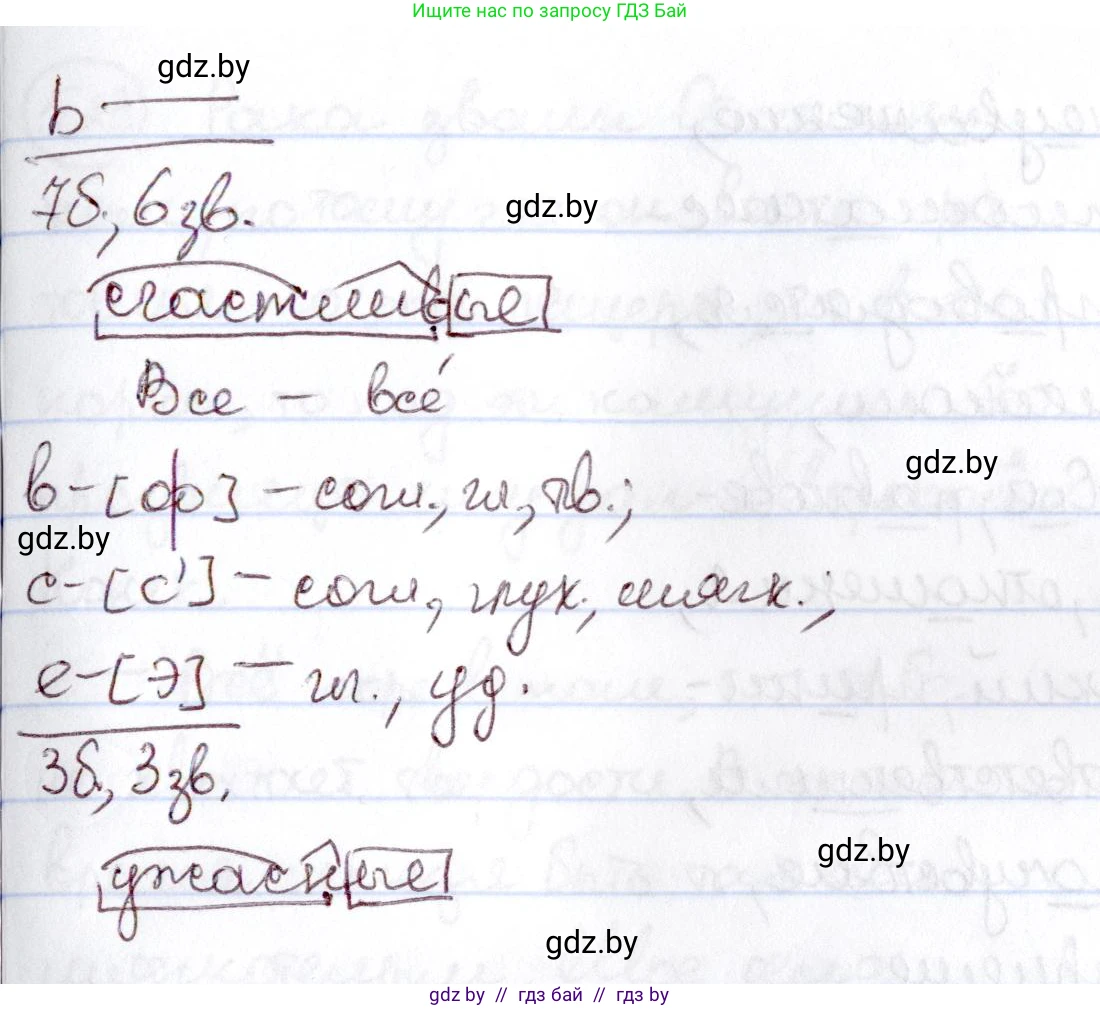 Ищите нас по запросу ГДЗ Бай
gdz.by
ь ———
7б, 6 зв.
gdz.by
счастливые
Все – все́
в – [ф] – согл., гл., тв.;
gdz.by
gdz.by
с – [с'] – согл., глух., мягк.;
е – [э] – гл., уд.
3б, 3 зв.
ужасные
gdz.by
gdz.by
gdz.by // гдз бай // гдз by